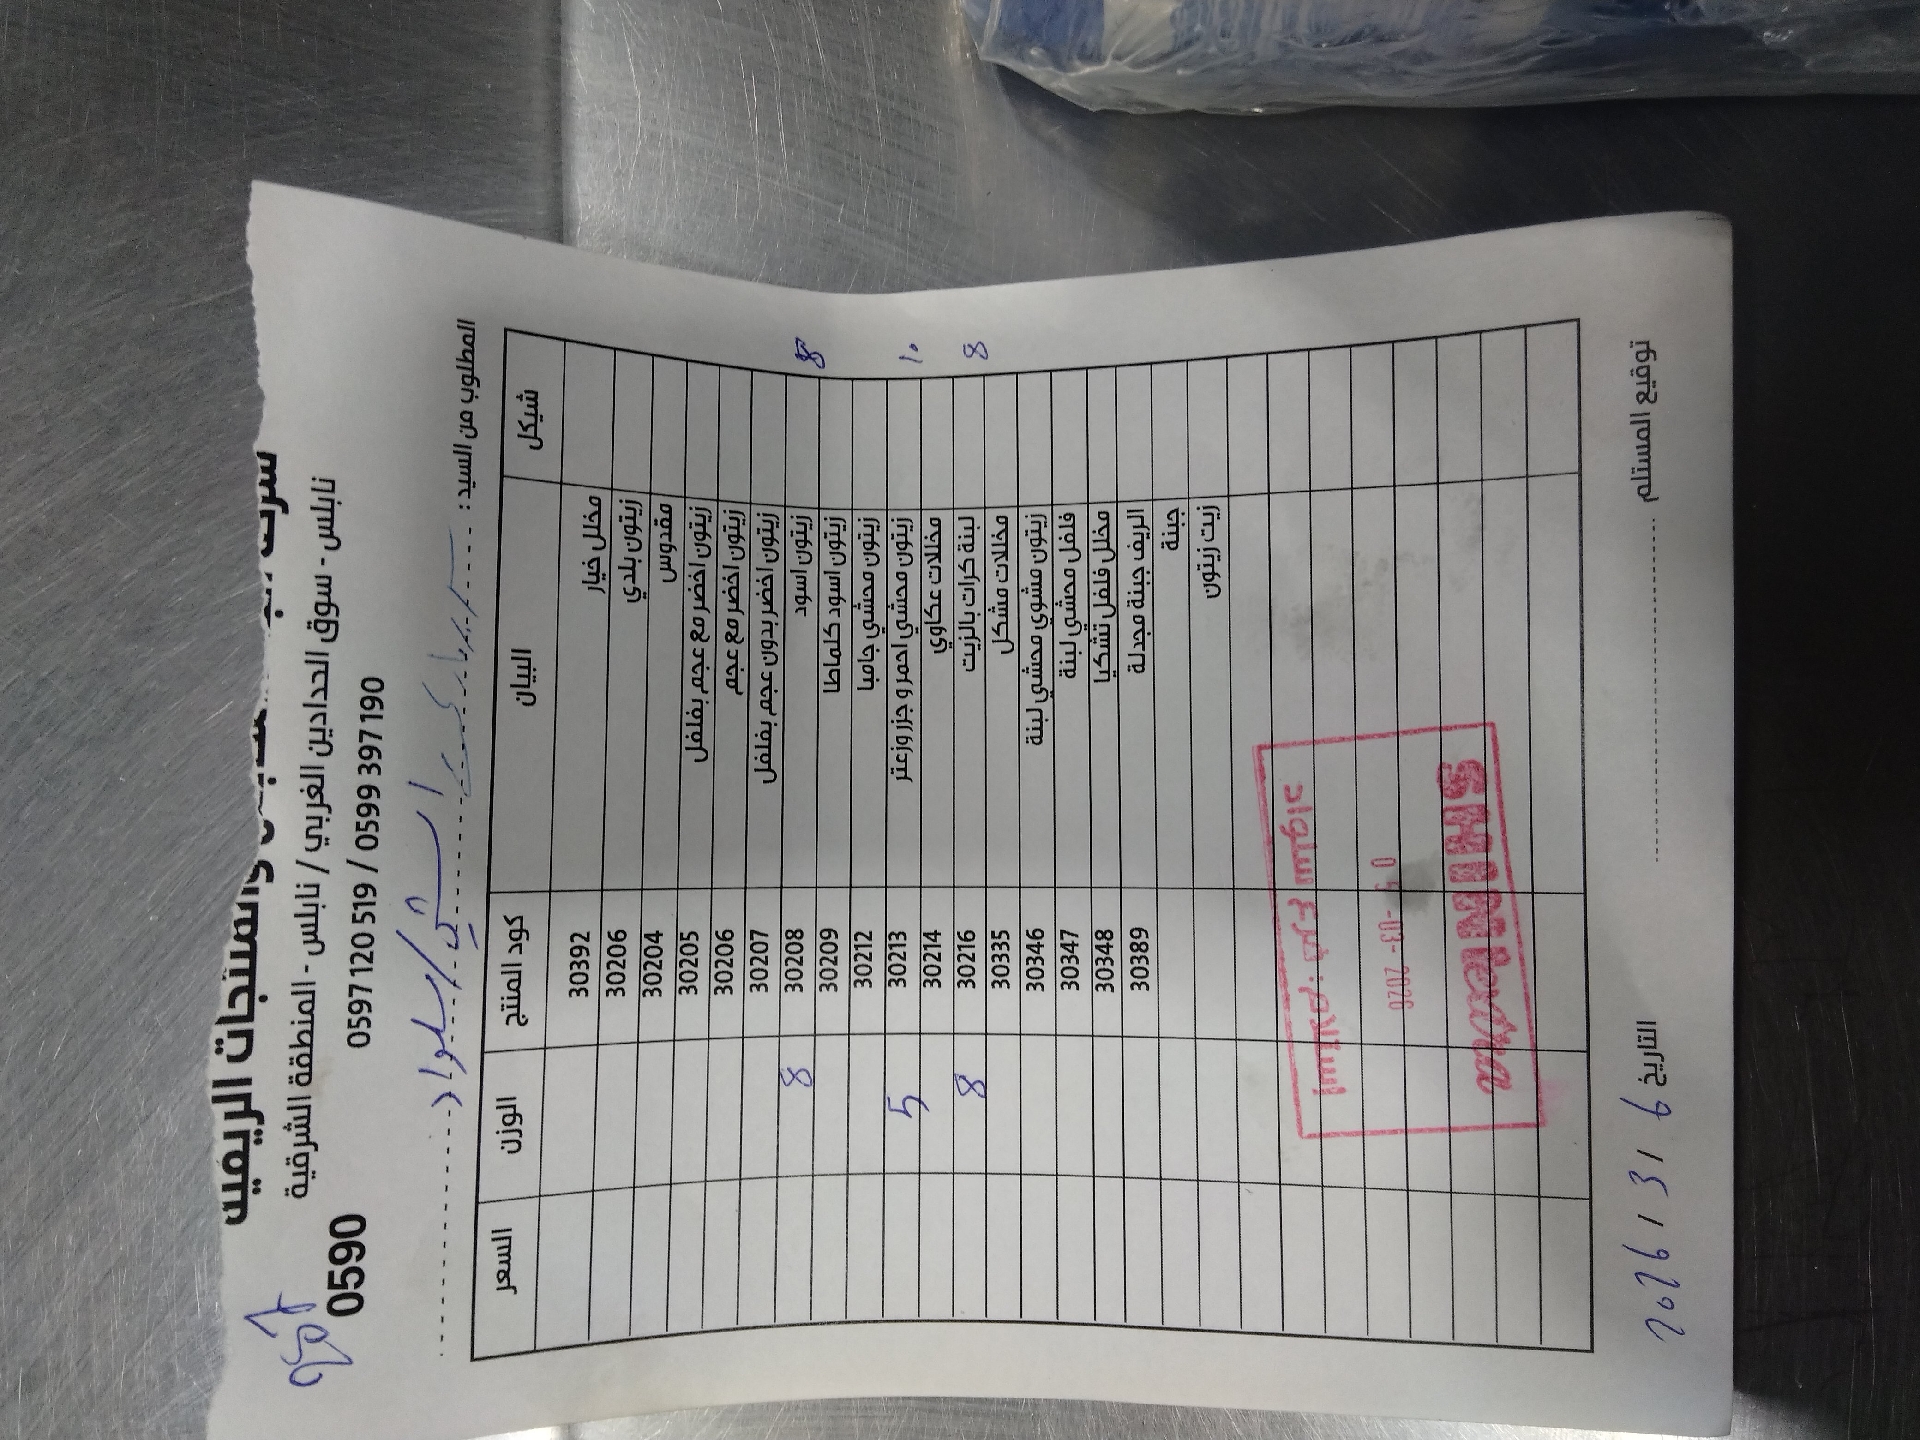 والمنتجات الريفية
نابلس - سوق الحدادين الغربي / نابلس - المنطقة الشرقية
0597 120 519 / 0599 397 190
0590
المطلوب من السيد:
السعر الوزن كود المنتج البيان شيكل
30392 مخلل خيار
30206 زيتون بلدي
30204 مقدوس
30205 زيتون اخضر مع عجم بفلفل
30206 زيتون اخضر مع عجم
30207 زيتون اخضر بدون عجم بفلفل
8 30208 زيتون اسود 8
30209 زيتون اسود كلماطا
30212 زيتون محشي جامبا
5 30213 زيتون محشي احمر و جزر وزعتر ١٠
30214 مخللات عكاوي
8 30216 لبنة كرات بالزيت 8
30335 مخللات مشكل
30346 زيتون مشوي محشي لبنة
30347 فلفل محشي لبنة
30348 مخلل فلفل تشكيا
30389 الريف جبنة مجدلة
جبنة
زيت زيتون
-03- 2026
SHINI extra
التاريخ 2026 / 3 / 6
توقيع المستلم